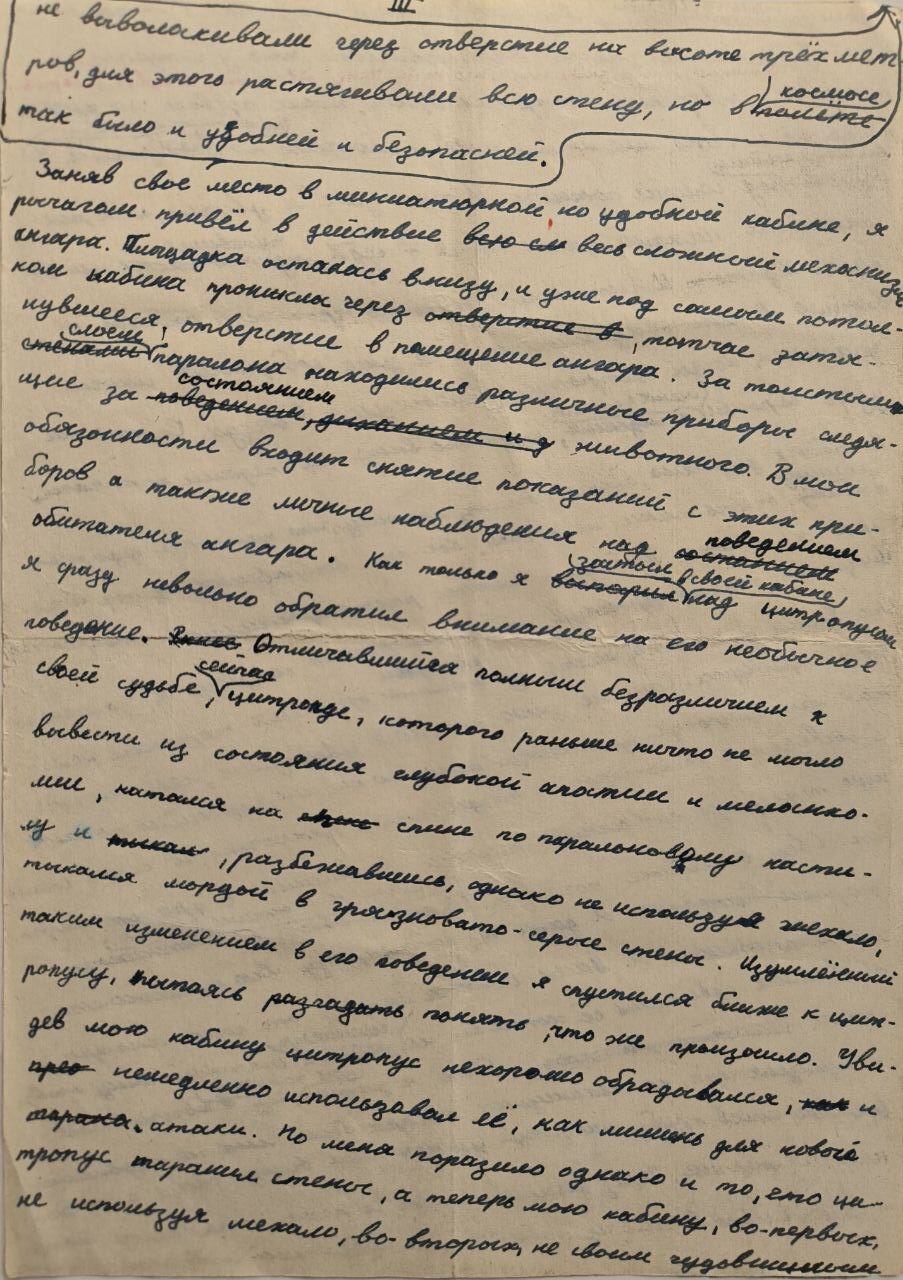 III
не выволакивали через отверстие на высоте трёх мет-
ров, для этого растягивали всю стену, но в полёте космосе
так было и удобней и безопасней.
Заняв свое место в миниатюрной, но удобной кабине, я
рычагом привёл в действие всю си весь сложный механизм
ангара. Площадка осталась внизу, и уже под самым потол-
ком кабина проникла через отверстие в, тотчас затя-
нувшееся, отверстие в помещение ангара. За толстым
стенами слоем паралона находились различные приборы следя-
щие за поведением, дыханием и д состоянием животного. В мои
обязонности входит снятие показаний с этих при-
боров а также личные наблюдения над состоянием поведением
обитателя ангара. Как только я воспарил завтом в своей кабине над цитропусом
я сразу невольно обратил внимание на его необычное
поведение. Отличавшийся полным безразличием к
своей судьбе, сейчас цитропде, которого раньше ничто не могло
вывести из состояния глубокой апатии и меланхо-
лии, катался на спине по паралоновому насти-
лу и тыкал, разбежавшись, однако не используя жехало,
тыкался мордой в грязновато-серые стены. Изумлённый
таким изменением в его поведении я спустился ближе к цит-
ропусу, пытаясь разгадать понять, что же произошло. Уви-
дев мою кабину цитропус нехорошо обрадывался, как и
прео немедленно использовал её, как мишень для новой
тарана. атаки. Но меня поразило однако и то, его ци-
тропус таранил стены, а теперь мою кабину, во-первых,
не используя мехало, во-вторых, не своим чудовищным